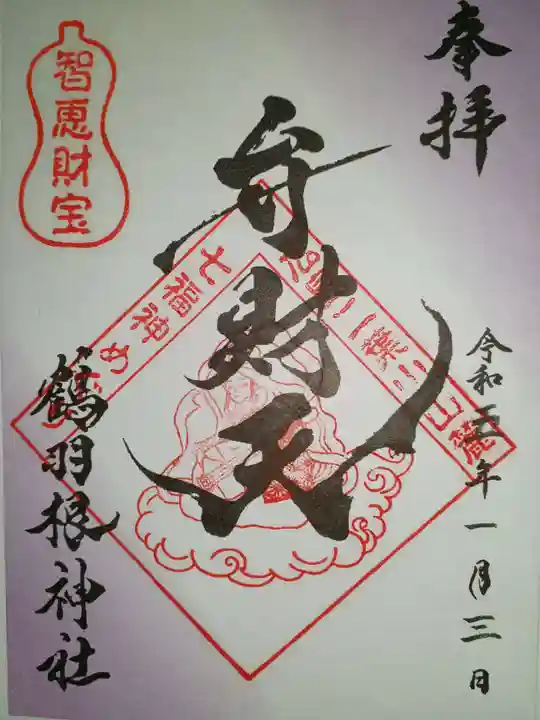 奉拝
令和二年一月三日
弁財天
七福神めぐり
智恵財宝
鶴羽根神社